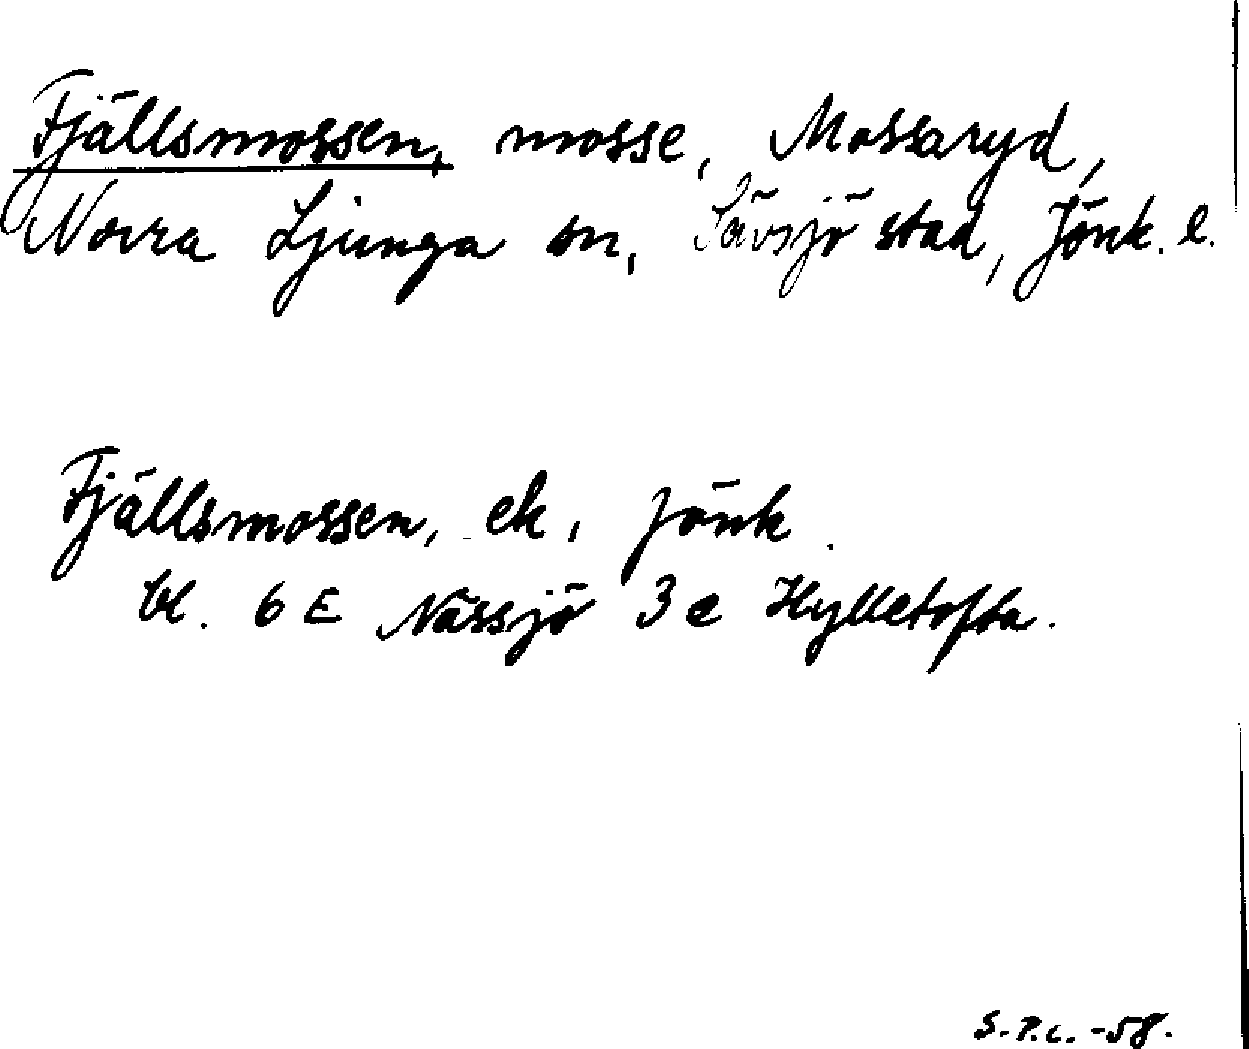 Fjällsmossen, mosse, Mossaryd,
Norra Ljunga sn, Sävsjö stad, Jönk. l.
Fjällsmossen, ek, Jönk.
bl. 6 E Nässjö 3 e Hylletofta.
S.P.L. -58.